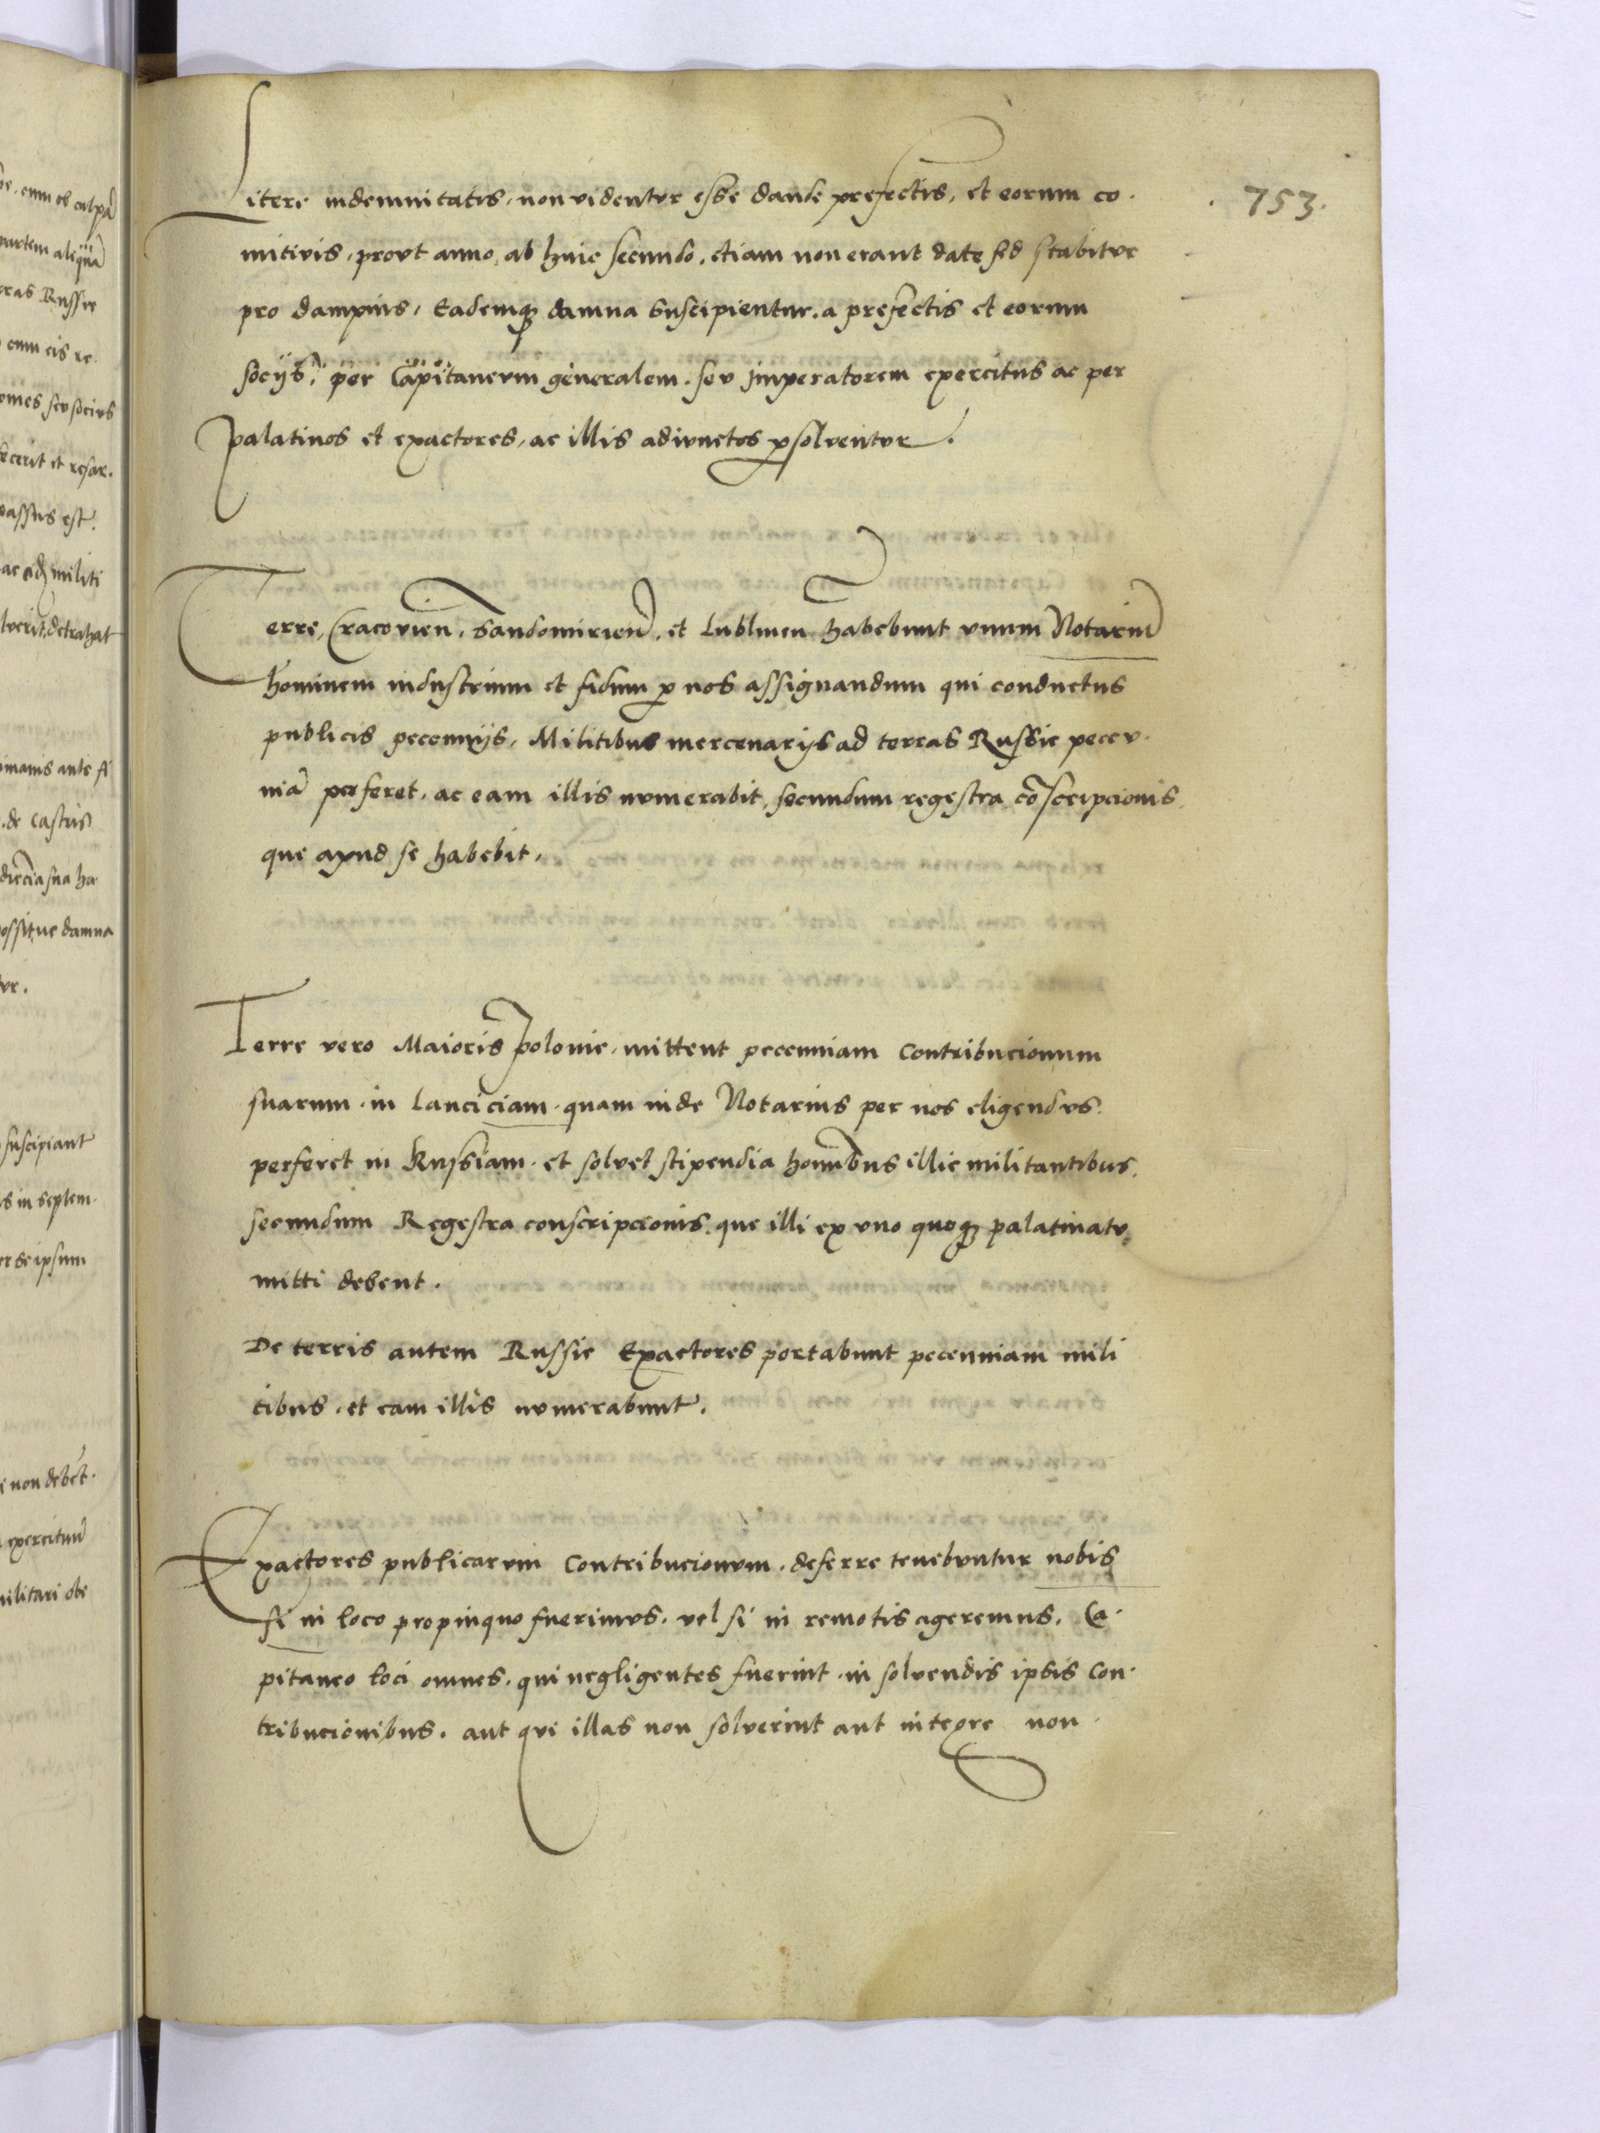 753.
Litere indemnitatis, non videntur esse dande prefectis, et eorum co.
mitivis, prout anno, ab huic secundo, etiam non erant date sed stabitur
pro dampnis, Eademq₃ damna suscipientur, a prefectis et eorum
socijs, per Capitaneum generalem, seu jmperatorem exercitus ac per
palatinos et exactores, ac illis adiunctos ꝑsolventur.
Terre, Cracovien̄, Sandomirien̄, et Lublinen̄ habebunt unum Notariū
hominem industrium et fidum ꝑ nos assignandum qui conductus
publicis pecunijs, Militibus mercenarijs ad terras Russie pecu.
niā perferet, ac eam illis numerabit, secundum regestra cōscripcionis,
que apud se habebit,
Terre vero Maioris polonie, mittent pecuniam contribucionum
suarum in Lanciciam quam inde Notarius per nos eligendus
perferet in Russiam, et solvet stipendia homībus illic militantibus,
secundum Regestra conscripcionis, que illi ex uno quoq₃ palatinatu
mitti debent.
De terris autem Russie Exactores portabunt pecuniam mili
tibus, et eam illis numerabunt.
Exactores publicarum Contribucionum, deferre tenebuntur nobis
si in loco propinquo fuerimus, vel si in remotis ageremus, Ca.
pitaneo loci omnes, qui negligentes fuerint in solvendis ipsis Con.
tribucionibus, aut qui illas non solverint aut integre non